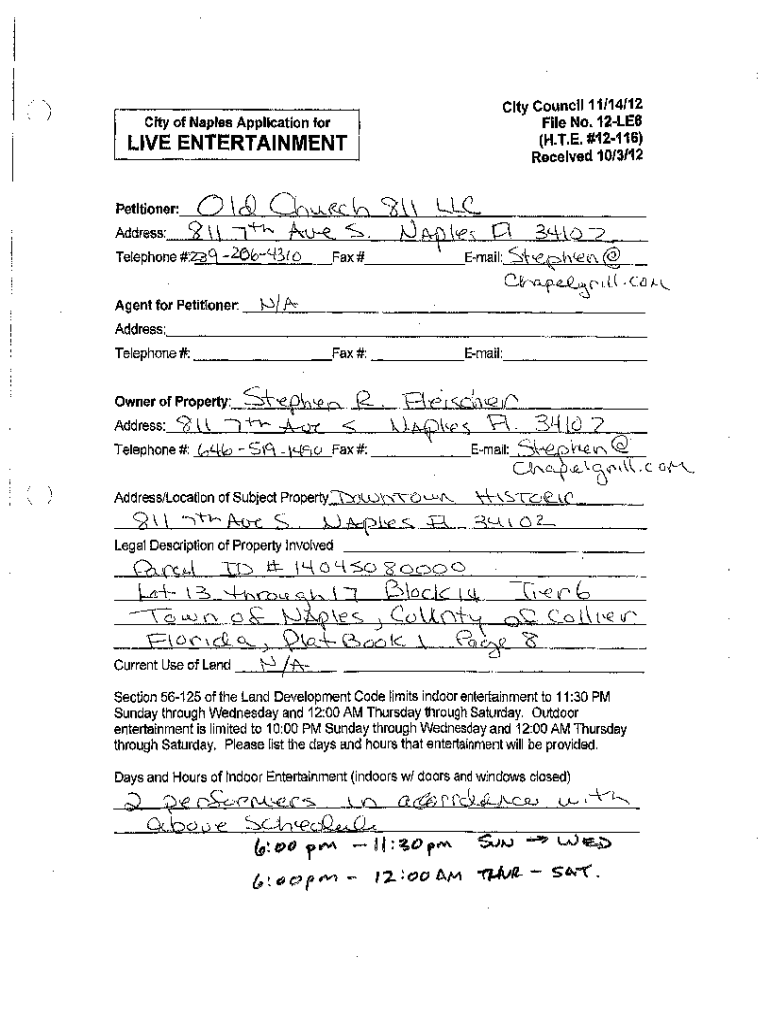 City Council 11/14/12
City of Naples Application for
File No. 12-LE6
LIVE ENTERTAINMENT
(H.T.E. #12-116)
Received 10/3/12
Petitioner: Old Church 811 LLC
Address: 811 7th Ave S. Naples Fl 34102
Telephone #: 239-206-4310 Fax # E-mail: Stephen@
Chapelgrill.com
Agent for Petitioner: N/A
Address:
Telephone #: Fax #: E-mail:
Owner of Property: Stephen R. Fleischer
Address: 811 7th Ave S Naples Fl. 34102
Telephone #: 646-519-1490 Fax #: E-mail: Stephen@
Chapelgrill.com
Address/Location of Subject Property Downtown Historic
811 7th Ave S. Naples Fl 34102
Legal Description of Property Involved
Parcel ID # 14045080000
Lot 13 through 17 Block 14 Tier 6
Town of Naples, County of Collier
Florida, Plat Book 1 Page 8
Current Use of Land N/A
Section 56-125 of the Land Development Code limits indoor entertainment to 11:30 PM
Sunday through Wednesday and 12:00 AM Thursday through Saturday. Outdoor
entertainment is limited to 10:00 PM Sunday through Wednesday and 12:00 AM Thursday
through Saturday. Please list the days and hours that entertainment will be provided.
Days and Hours of Indoor Entertainment (indoors w/ doors and windows closed)
2 performers in accordance with
above Schedule
6:00 pm - 11:30 pm SUN → WED
6:00 pm - 12:00 AM THUR - SAT.